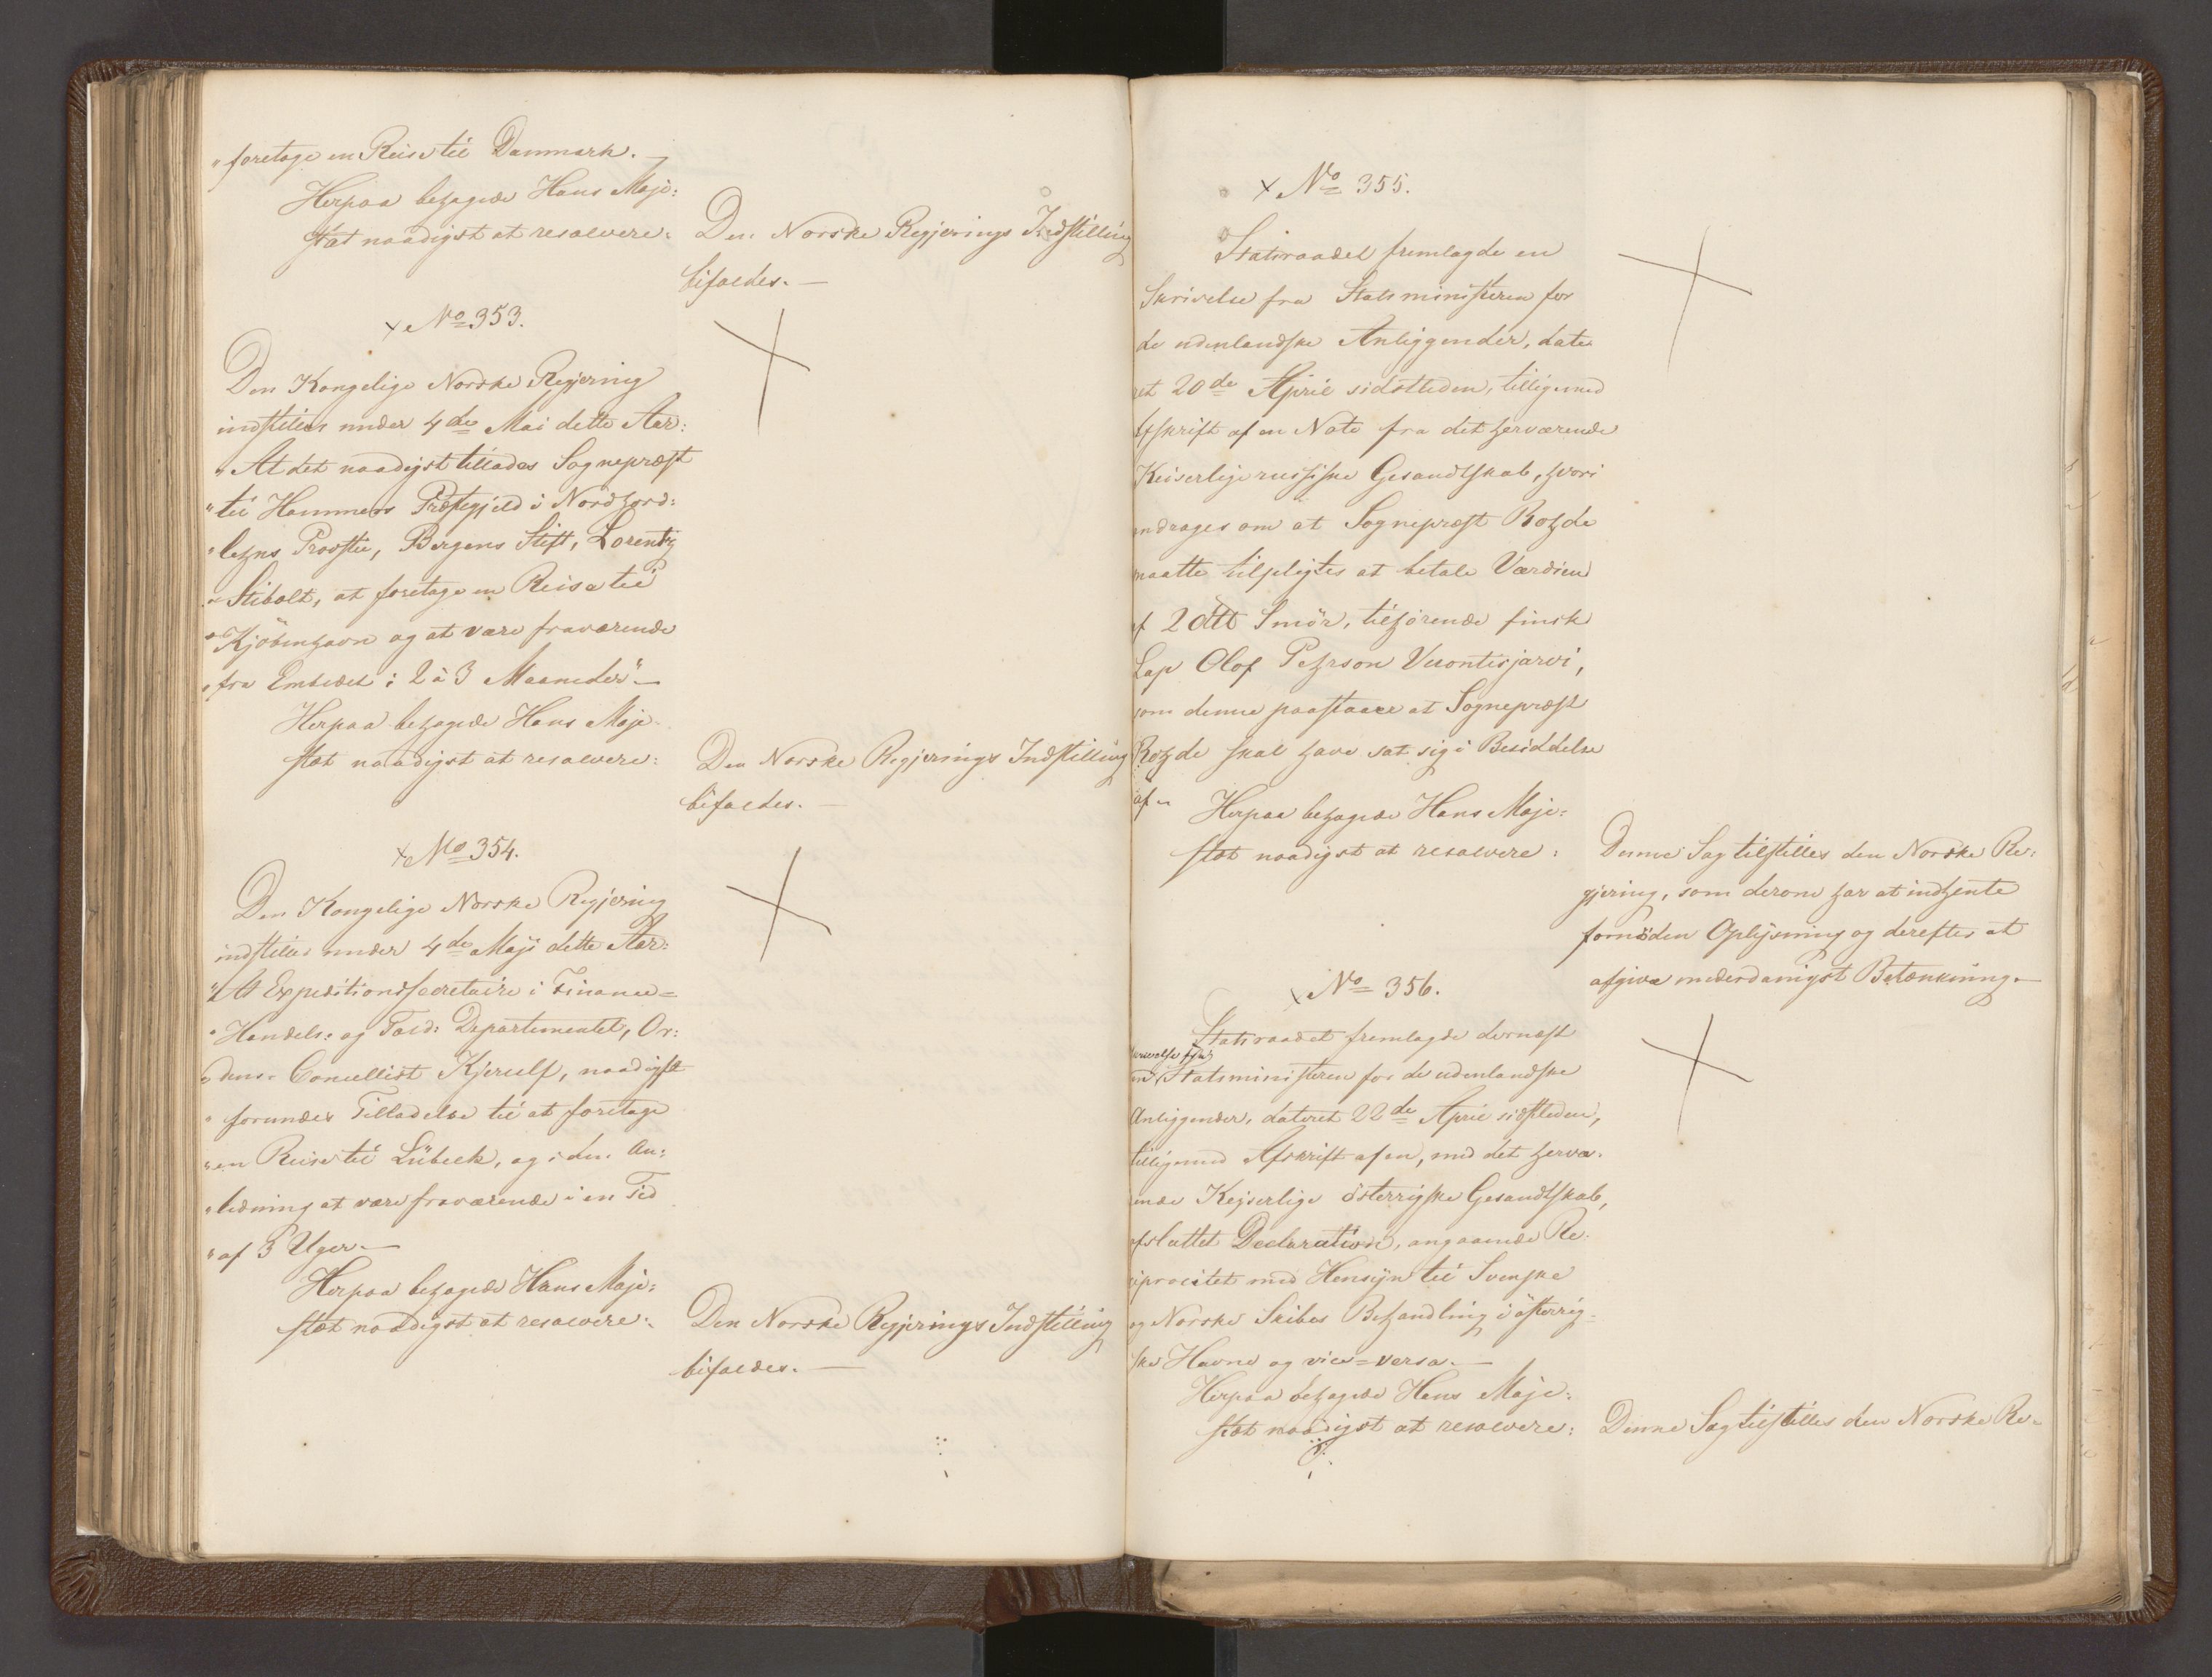 "foretage en Reise til Danmark. —
Herpaa behagede Hans Maje:
stæt naadigst at resolvere:
Den Norske Regjerings Indstilling
bifaldes. —
x No 353.
Den Kongelige Norske Regjering
indstiller under 4de Mai dette Aar:
"At det naadigst tillades Sognepræst
"til Hammers Præstegjeld i Nordhord:
"lehns Provstie, Bergens Stift, Lorentz
"Stibolt, at foretage en Reise til
"Kjöbenhavn og at være fraværende
"fra Embedet i 2 à 3 Maaneder" —
Herpaa behagede Hans Maje
stæt naadigst at resolvere:
Den Norske Regjerings Indstilling
bifaldes. —
x No 354.
Den Kongelige Norske Regjering
indstiller under 4de Maji dette Aar:
"At Expeditionssecretaire i Finance=
"Handels: og Told: Departementet, Or:
"dens: Cancellist Kjerulf, naadigst
"forundes Tilladelse til at foretage
"en Reise til Lübeck, og i den An:
"ledning at være fraværende i en Tid
"af 3 Uger. —
Herpaa behagede Hans Maje:
stæt naadigst at resolvere:
Den Norske Regjerings Indstilling
bifaldes. —
x No 355.
Statsraadet fremlagde en
Skrivelse fra Statsministeren for
de udenlandske Anliggender, date
ret 20de April sidstleden, tilligemed
Afskrift af en Note fra det herværende
Keiserlige russiske Gesandtskab, hvori
andrages om at Sognepræst Rohde
maatte tilpligtes at betale Værdien
af 2 Smör, tilhörende finsk
Lap Olof Pehrson Vuontisjarvi,
som denne paastaaer at Sognepræst
Rohde skal have sat sig i Besiddelse
af. —
Herpaa behagede Hans Maje:
stæt naadigst at resolvere:
Denne Sag tilstilles den Norske Re:
gjering, som derom har at indhente
fornöden Oplysning og derefter at
afgive underdanigst Betænkning. —
x No 356.
Statsraadet fremlagde dernæst
Skrivelse fra
Statsministeren for de udenlandske
Anliggender, dateret 22de April sidstleden,
tilligemed Afskrift af en, med det hervæ:
ende Keyserlige österrigske Gesandtskab,
afsluttet Declaration, angaaende Re:
ciprocitet med Hensyn til Svenske
og Norske Skibes Behandling i österrig=
ske Havne og vice=versa. —
Herpaa behagede Hans Maje:
stæt naadigst at resolvere:
Denne Sag tilstilles den Norske Re=